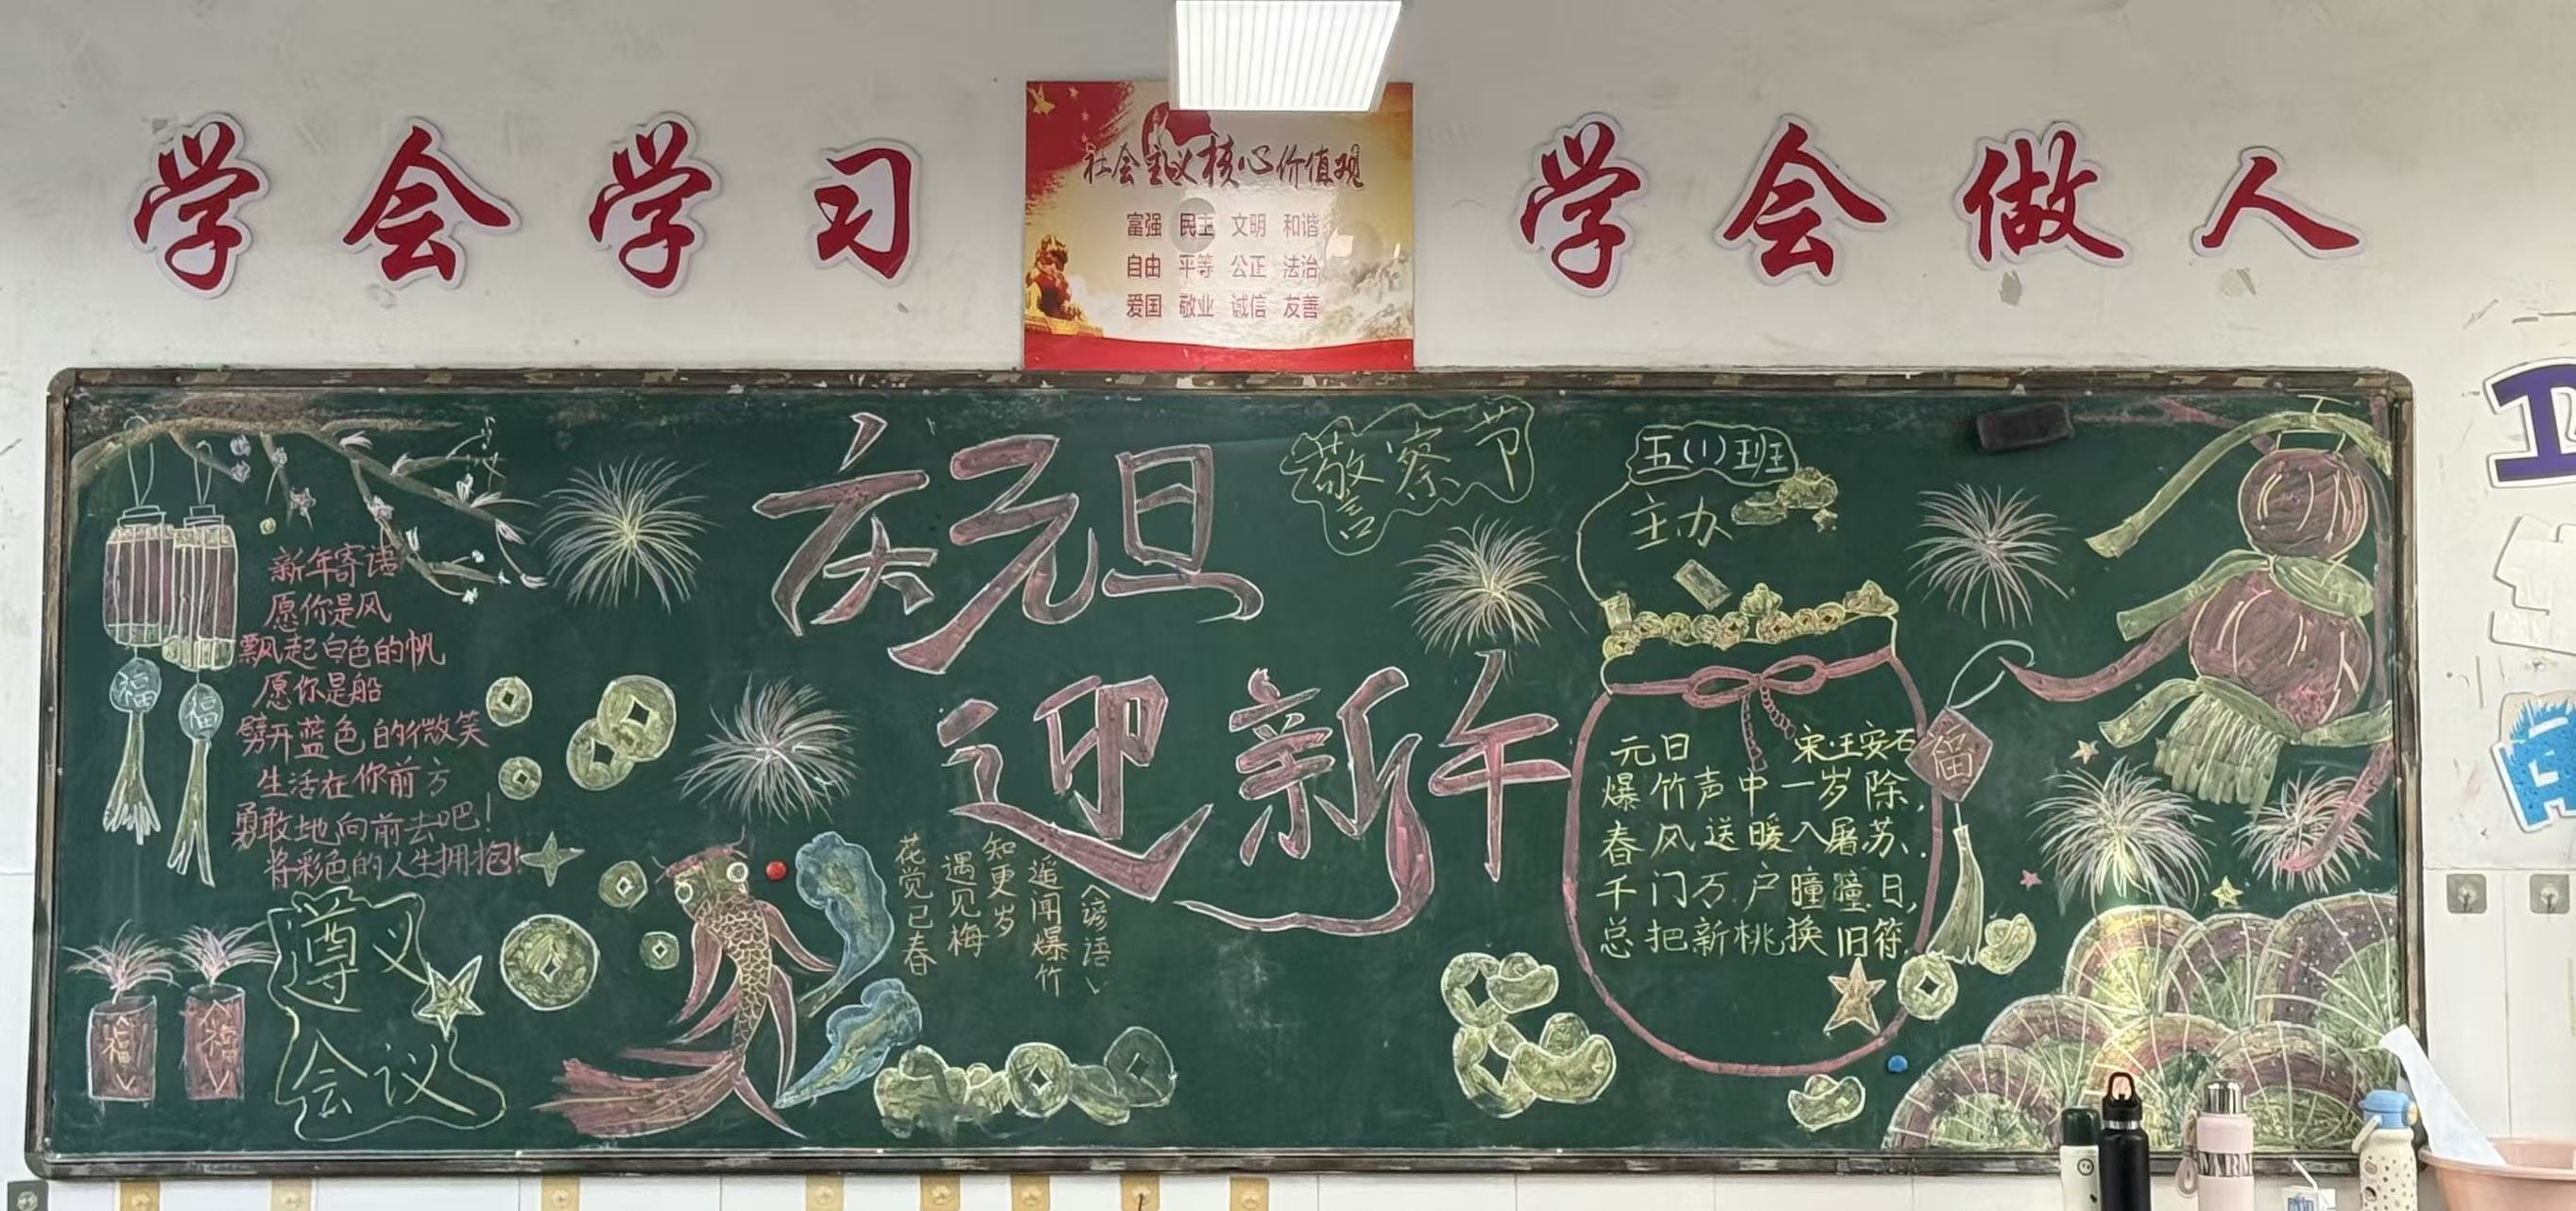 学会学习
社会主义核心价值观
富强 民主 文明 和谐
自由 平等 公正 法治
爱国 敬业 诚信 友善
学会做人
庆元旦
迎新年
警察节
五(1)班
主办
新年寄语
愿你是风
飘起白色的帆
愿你是船
劈开蓝色的微笑
生活在你前方
勇敢地向前去吧!
将彩色的人生拥抱!
福
福
福
福
遵义
会议
《谚语》
遥闻爆竹
知更岁
遇见梅
花觉已春
元日 宋·王安石
爆竹声中一岁除,
春风送暖入屠苏.
千门万户曈曈日,
总把新桃换旧符.
福
卫